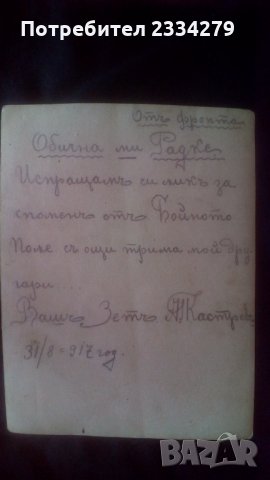 Потребител 2334279
Отъ фронта
Обична ми Радке
Испращамъ си ликъ за
споменъ отъ Бойното
Поле, съ още трима мои дру
гари....
Вашъ Зетъ
31/8 = 917 год.
BAZAR